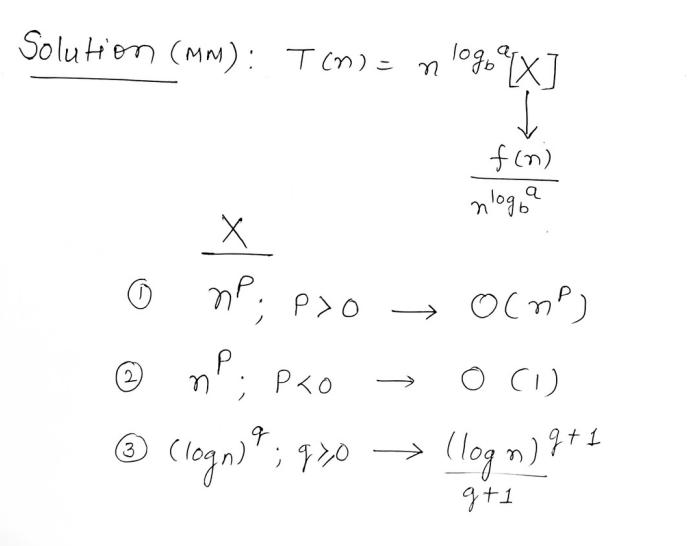 Solution (MM): T(n) = n^{log_b a} [X]
↓
f(n)
n^{log_b a}
X
① n^P; P>0 → O(n^P)
② n^P; P<0 → O(1)
③ (log n)^q; q≥0 → (log n)^{q+1}
q+1